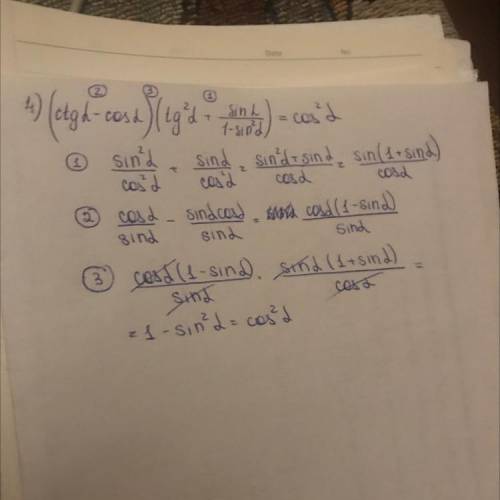 Date No.
② ③ ①
4) (ctgα - cosα)(tg²α + sinα/(1-sin²α)) = cos²α
① sin²α/cos²α + sinα/cos²α = (sin²α + sinα)/cosα = sin(1+sinα)/cosα
② cosα/sinα - sinαcosα/sinα = cosα(1-sinα)/sinα
③ cosα(1-sinα)/sinα · sinα(1+sinα)/cosα =
= 1 - sin²α = cos²α